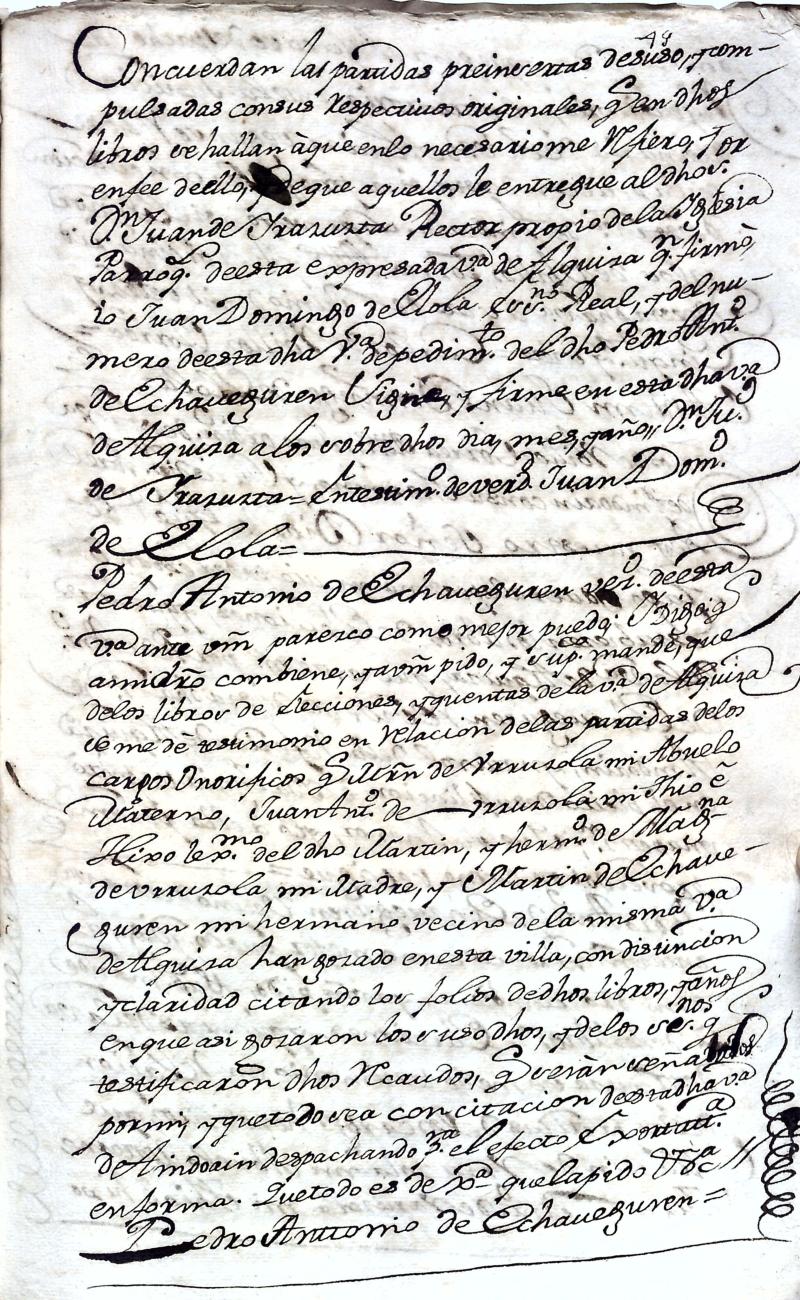 49
Concuerdan las partidas preinsertas desuso, y com-
pulsadas consus Respectivos originales, q̃ en dhos
libros se hallan àque enlo necesario me Refiero, Y or
enfee dello, y deque aquellos le entregue al dho S.r
D.n Juan de Yrazuzta Rector propio de la Yglesia
Parroq.l de esta expresada v.a de Alquiza q.n firmò,
io Juan Domingo de Elola Ess.no Real, y del nu-
mero de esta dha V.a de pedim.to del dho Pedro Ant.o
de Echaveguren Signe, y firme en esta dha v.a
de Alquiza a los sobre dhos dia, mes, y año,, D.n Ju.o
de Yrazuzta = Entestim.o de verd.d Juan Dom.o
de Elola=
Pedro Antonio de Echaveguren vez.o de esta
v.a ante vm̃ parezco como mejor pueda; Y Digo q̃
amidr̃o combiene, y avm̃ pido, y sup.co mande, que
delos libros de Elecciones, y quentas de la v.a de Alquiza
se me dè testimonio en Relacion delas partidas delos
cargos Onorificos q̃ Mrñ de Urruzola mi Abuelo
Materno, Juan Ant.o de Urruzola mi Thio ẽ
Hixo lex.mo del dho Martin, y herm.o de Mag.na
de Urruzola mi Madre, y Martin de Echave-
guren mi hermano vecino de la misma v.a
de Alquiza han gozado en esta villa, con distincion
y claridad citando los folios de dhos libros, y años
en que asi gozaron los suso dhos, y delos es.nos q̃
testificaron dhos Recaudos, q̃ seràn señalados
por mi, y que todo sea con citacion de esta dha v.a
de Aindoain despachando p.a el efecto Exortatt.a
en forma. Que todo es de xp.a que la pido &c.a //
Pedro Anttonio de Echaveguren =